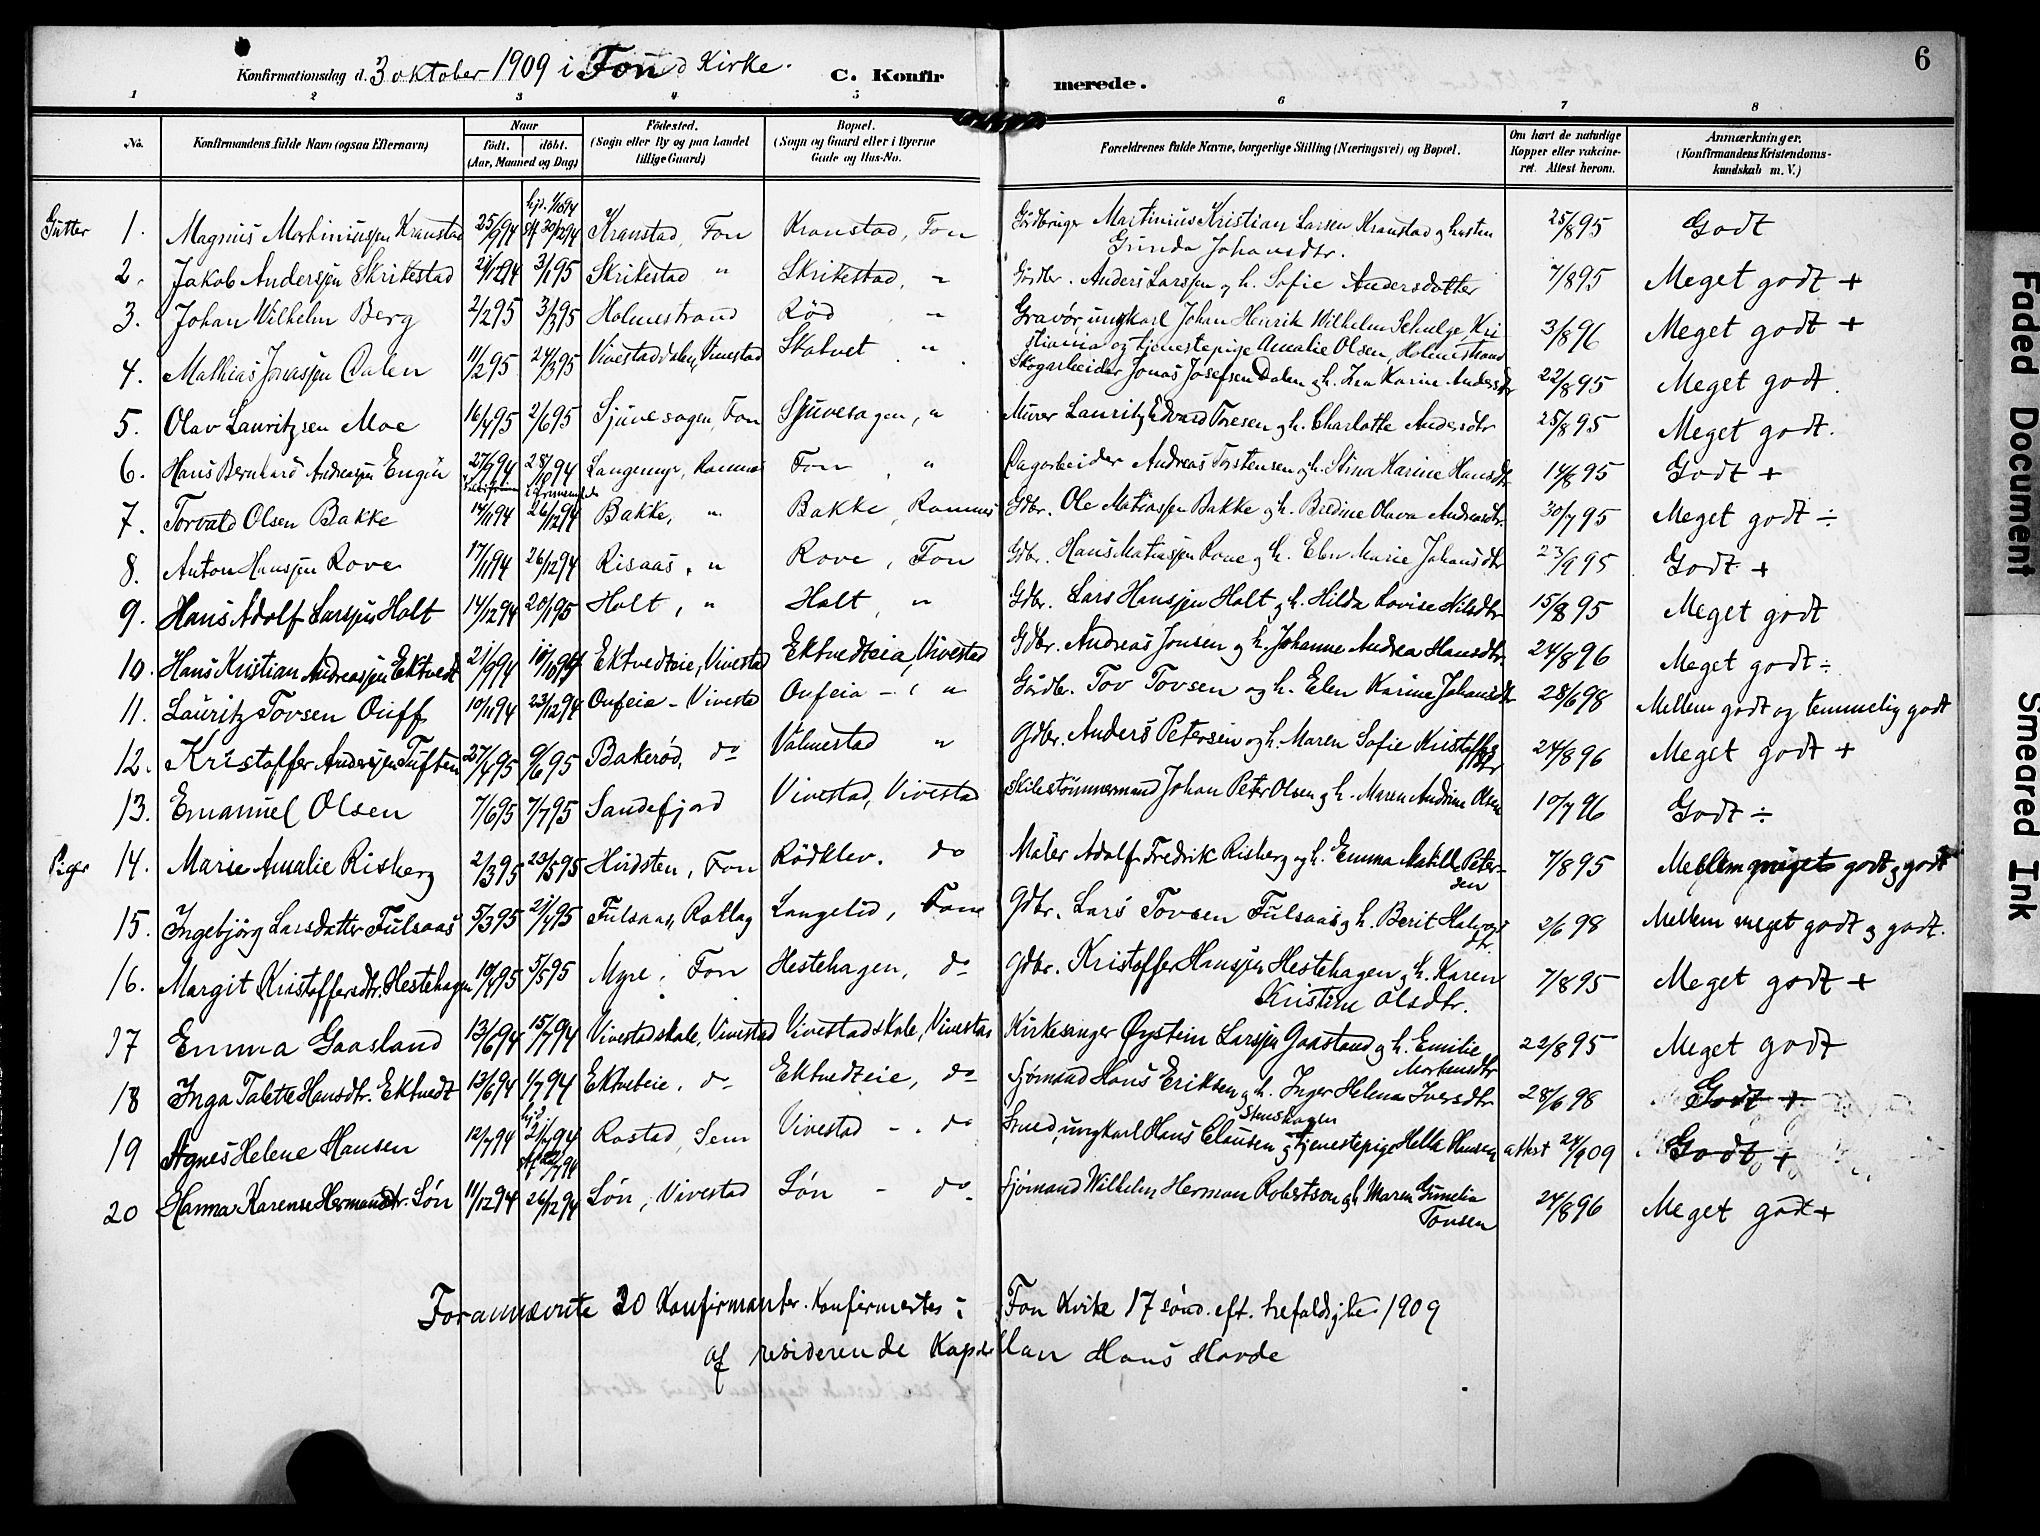 6
Konfirmationsdag d. 3 oktober 1909 i Fon Kirke.
C. Konfirmerede.
1 2 3 4 5 6 7 8
No.
Konfirmandens fulde Navn (ogsaa Efternavn)
Naar
født. døbt.
(Aar, Maaned og Dag)
Fødested.
(Sogn eller By og paa Landet
tillige Gaard)
Bopæl.
(Sogn og Gaard eller i Byerne
Gade og Hus-No.
Forældrenes fulde Navne, borgerlige Stilling (Næringsvei) og Bopæl.
Om havt de naturlige
Kopper eller vakcine-
ret. Attest herom.
Anmærkninger.
(Konfirmandens Kristendoms-
kundskab m. V.)
Gutter 1. Magnus Martiniussen Kranstad 25/9 94 30/12 94 Kranstad, Fon Kranstad, Fon Gårdbruger Martinius Kristian Larsen Kranstad og hustru 25/8 95 Godt
Gunda Johansdtr.
2. Jakob Anderssen Skrikestad 21/12 94 3/1 95 Skrikestad " Skrikestad, " Gårdbr. Anders Larssen og h. Sofie Andersdatter 7/8 95 Meget godt +
3. Johan Wilhelm Berg 2/2 95 3/3 95 Holmestrand Rød " Gravør, ungkarl Johan Henrik Wilhelm Schulze, Kri 3/8 96 Meget godt +
stiania og tjenestepige Amalie Olsen, Holmestrand
4. Mathias Jonassen Dalen 11/2 95 24/3 95 Vivestaddalen, Vivestad Skatvet " Skogarbeider Jonas Josefsen Dalen og h. Lea Karine Andersdtr 22/8 95 Meget godt.
5. Olav Lauritzsen Moe 16/4 95 2/6 95 Sjuvesagen, Fon Sjuvesagen, " Murer Lauritz Edvard Toresen og h. Charlotte Andersdtr 25/8 95 Meget godt.
6. Hans Bernhard Andreassen Engen 27/9 94 28/10 94 Langemyr, Ramnes Fon " Dagarbeider Andreas Torstensen og h. Stina Karine Hansdtr 14/8 95 Godt +
7. Torvald Olsen Bakke 14/11 94 26/12 94 Bakke, " Bakke, Ramnes Gdbr. Ole Matiassen Bakke og h. Berdine Olava Andreasdtr. 30/7 95 Meget godt ÷
8. Anton Hanssen Rove 17/11 94 26/12 94 Risaas, " Rove, Fon Gdbr. Hans Matiassen Rove og h. Elen Marie Johansdtr 23/9 95 Godt +
9. Hans Adolf Larssen Holt 14/12 94 20/1 95 Holt, " Holt, " Gdbr. Lars Hanssen Holt og h. Hilda Lovise Nilsdtr 15/8 95 Meget godt
10. Hans Kristian Andreassen Ektvedt 21/9 94 Ektvedteie, Vivestad Ektvedteia, Vivestad Gdbr. Andreas Jonsen og h. Johanne Andrea Hansdtr. 24/8 96 Meget godt ÷
11. Lauritz Tovsen Ouff 10/11 94 23/12 94 Oufeia - Vivestad Oufeia - , " Gårdbr. Tov Tovsen og h. Elen Karine Johansdtr 28/6 98 Mellem godt og temmelig godt
12. Kristoffer Anderssen Tuften 27/4 95 9/6 95 Bakerød, do Valmestad " Gdbr. Anders Petersen og h. Maren Sofie Kristoffersdtr 24/8 96 Meget godt +
13. Emanuel Olsen 7/6 95 7/7 95 Sandefjord Vivestad, Vivestad Skibstømmermand Johan Peter Olsen og h. Maren Andrine Olsen 10/7 96 Godt ÷
Piger 14. Marie Amalie Risberg 2/3 95 23/5 95 Hvidsten, Fon Rødklev. do Maler Adolf Fredrik Risberg og h. Emma Matilde Peter- 7/8 95 Mellem meget godt og godt
sen
15. Ingebjörg Larsdatter Fulsaas 5/3 95 21/4 95 Fulsaas, Rollag Langelid, Fon Gdbr. Lars Tovsen Fulsaas og h. Berit Halvors 2/6 98 Mellem meget godt og godt.
dtr
16. Margit Kristoffersdtr. Hestehagen 10/4 95 5/5 95 Myre, Fon Hestehagen, do Gdbr. Kristoffer Hanssen Hestehagen og h. Karen 7/8 95 Meget godt +
Kristine Olsdtr.
17 Emma Gaasland 13/6 94 15/7 94 Vivestadskole, Vivestad Vivestadskole, Vivestad Kirkesanger Øystein Larssen Gaasland og h. Emilie 22/8 95 Meget godt
Mortensdtr
18 Inga Talette Hansdtr. Ektvedt 13/6 94 1/7 94 Ektveteie, do Ektvedteie, do Sjømand Hans Eriksen og h. Inger Helena Iversdtr 28/6 98 Godt +
19 Agnes Helene Hansen 12/7 94 hjd. 21/7 94 Rostad, Sem Vivestad - . do Smed, ungkarl Hans Clausen Stenshagen og tjenestepige Hella Hansen attest 24/9 09 Godt +
20 Hanna Karense Hermansdtr. Løn 11/12 94 26/12 94 Løn, Vivestad Løn - do Sjømand Wilhelm Herman Robertson og h. Maren Gunelia 24/8 96 Meget godt +
Tovsen
Forannævnte 20 Konfirmanter konfirmertes i Fon Kirke 17 sønd. eft. trefoldighet 1909
af residerende Kapellan Hans Hovde
Faded Document
Smeared Ink